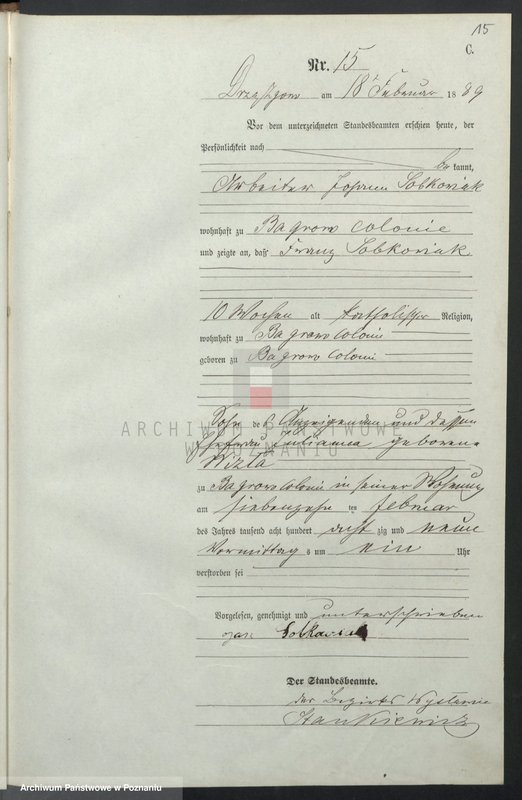 15
C.
Nr. 15
am 18 Februar 1889
Vor dem unterzeichneten Standesbeamten erschien heute, der
Persönlichkeit nach
be kannt,
Arbeiter Johann Sobkowiak
wohnhaft zu Bagrowo Colonie
und zeigte an, daß Franz Sobkowiak
10 Wochen alt katholischer Religion,
wohnhaft zu Bagrowo Colonie
geboren zu Bagrowo Colonie
Sohn des Anzeigenden und dessen
ARCHIWUM PAŃSTWOWE
W POZNANIU
Ehefrau Julianna geborene
zu Bagrowo Colonie in seiner Wohnung
am siebenzehn ten Februar
des Jahres tausend acht hundert acht zig und neun
Vormittags um ein Uhr
verstorben sei
Vorgelesen, genehmigt und unterschrieben
Der Standesbeamte.
Archiwum Państwowe w Poznaniu